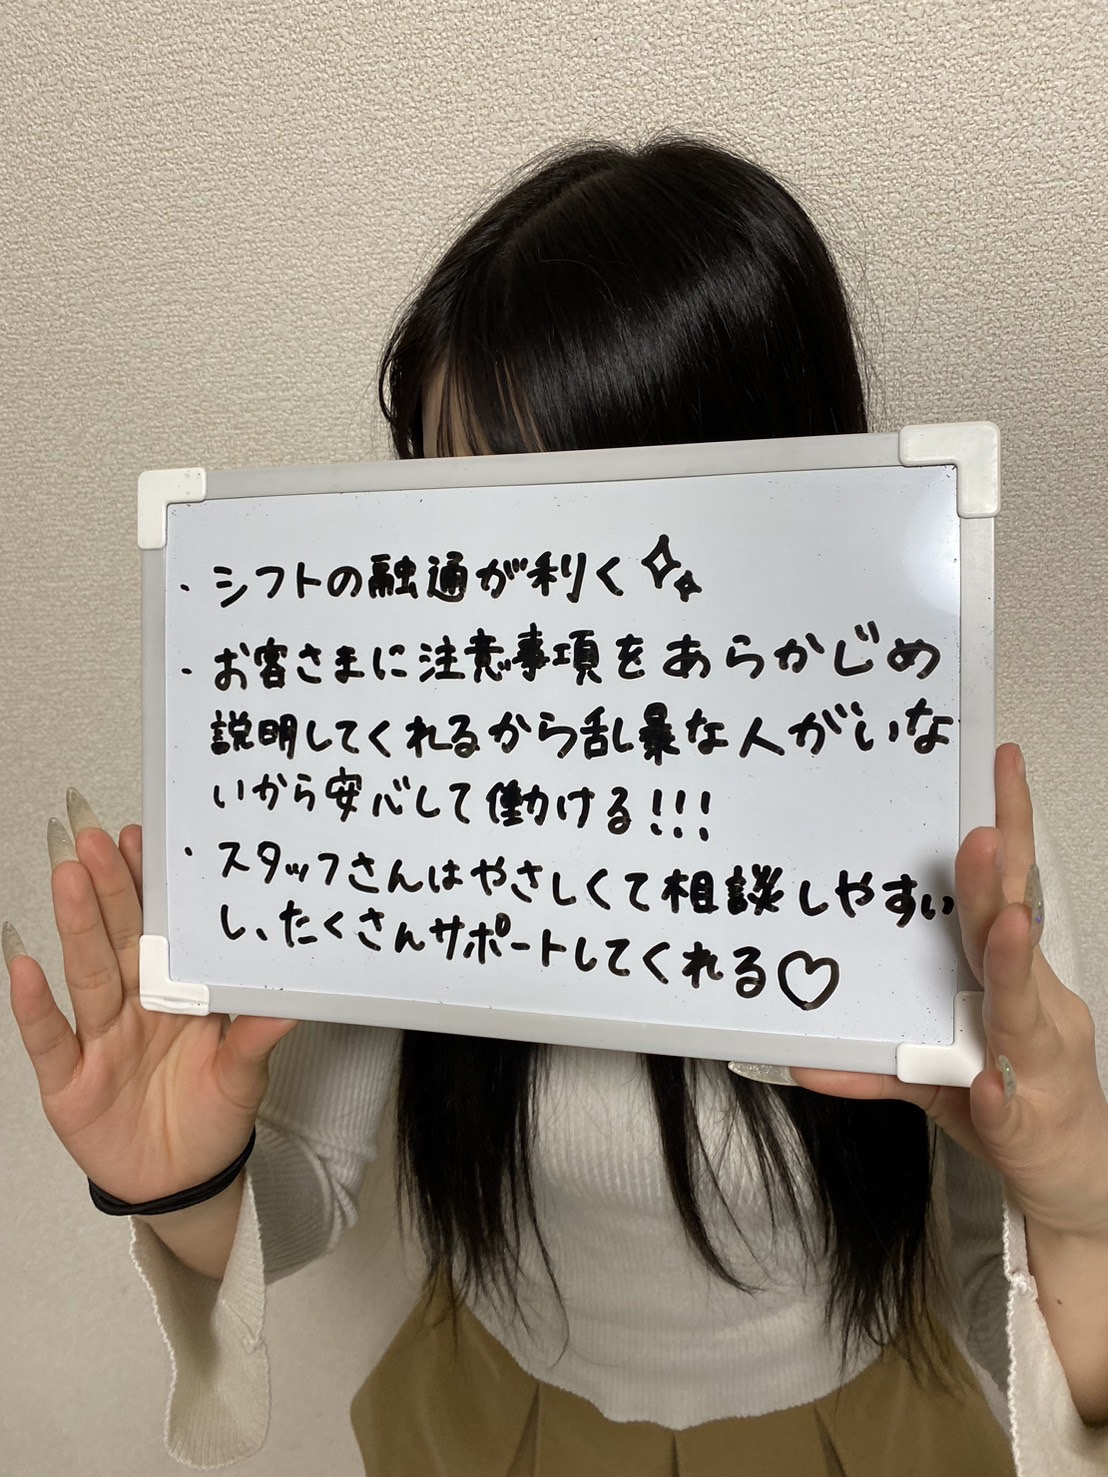 ・シフトの融通が利く✨
・お客さまに注意事項をあらかじめ
説明してくれるから乱暴な人がいな
いから安心して働ける!!!
・スタッフさんはやさしくて相談しやすい
し、たくさんサポートしてくれる♡